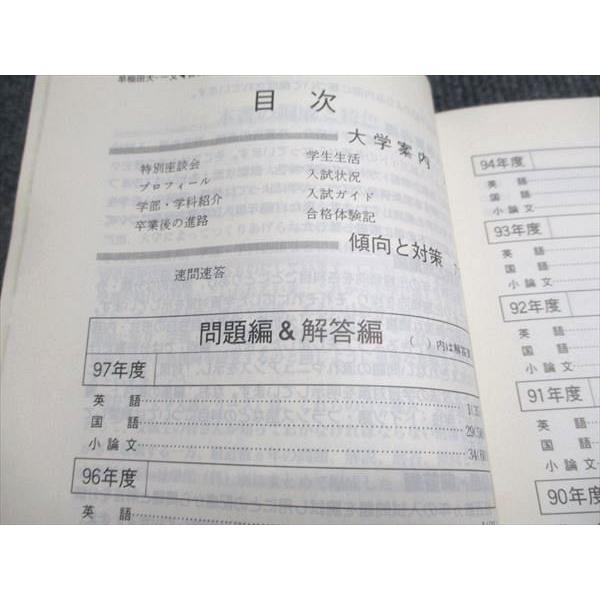 早稲田大-一文
目次
大学案内
特別座談会 学生生活
プロフィール 入試状況
学部・学科紹介 入試ガイド
卒業後の進路 合格体験記
傾向と対策
速問速答
問題編&解答編 ( )内は解答
97年度
英語
国語 29
小論文 34
96年度
英語
94年度
英語
国語
小論文
93年度
英語
国語
小論文
92年度
英語
国語
小論文
91年度
英語
国語
小論文
90年度